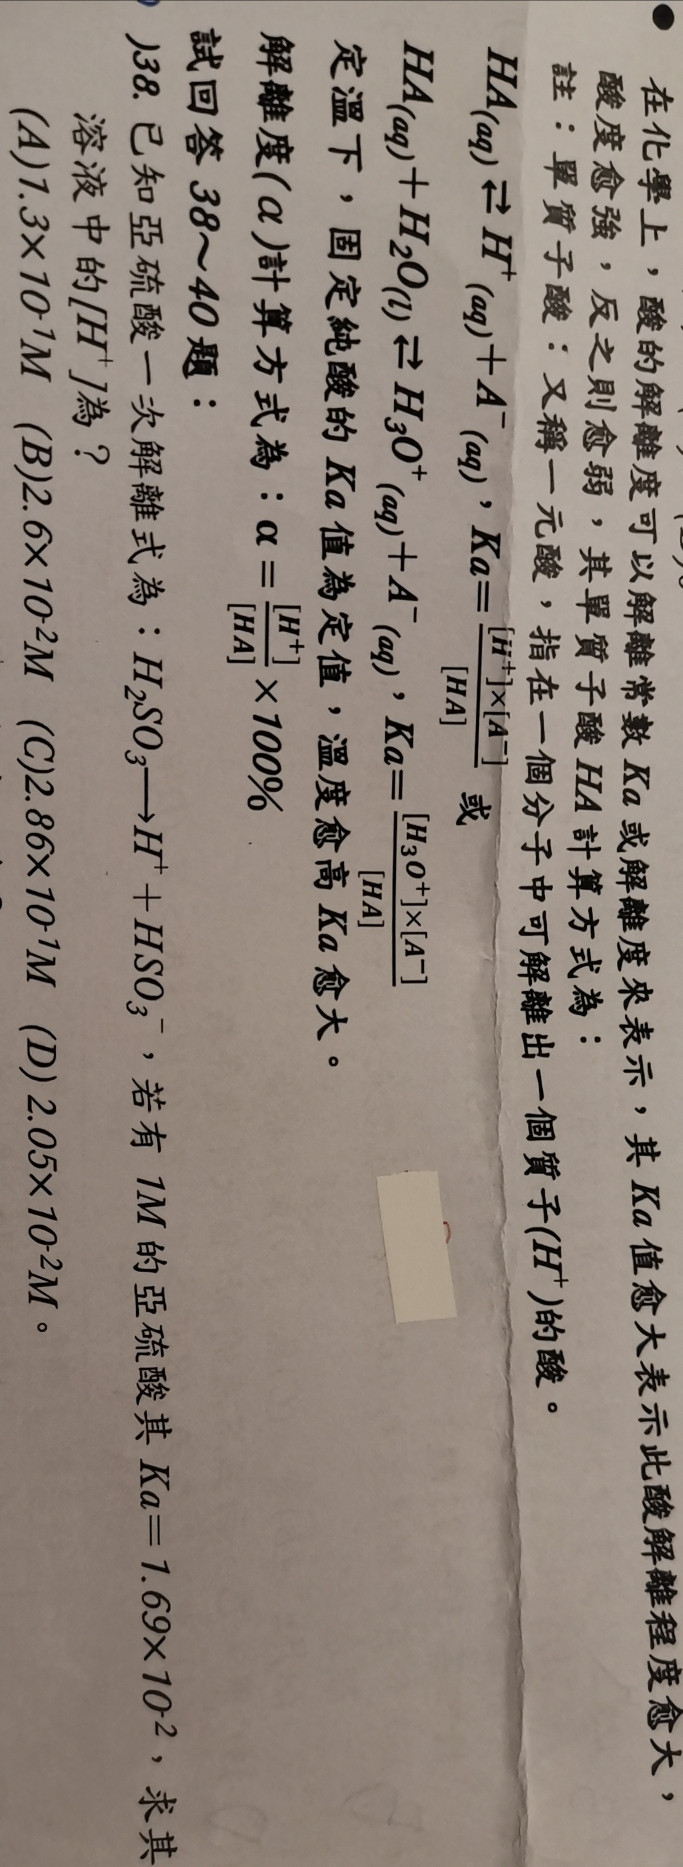 在化學上，酸的解離度可以解離常數 Ka 或解離度來表示，其 Ka 值愈大表示此酸解離程度愈大，
酸度愈強，反之則愈弱，其單質子酸 HA 計算方式為：
註：單質子酸：又稱一元酸，指在一個分子中可解離出一個質子(H⁺)的酸。
HA(aq) ⇄ H⁺(aq)＋A⁻(aq)，Ka＝[H⁺]×[A⁻]/[HA] 或
HA(aq)＋H₂O(l) ⇄ H₃O⁺(aq)＋A⁻(aq)，Ka＝[H₃O⁺]×[A⁻]/[HA]
定溫下，固定純酸的 Ka 值為定值，溫度愈高 Ka 愈大。
解離度(α)計算方式為：α＝[H⁺]/[HA]×100%
試回答 38～40 題：
)38. 已知亞硫酸一次解離式為：H₂SO₃⟶H⁺＋HSO₃⁻，若有 1M 的亞硫酸其 Ka＝1.69×10⁻²，求其
溶液中的[H⁺]為？
(A)1.3×10⁻¹M (B)2.6×10⁻²M (C)2.86×10⁻¹M (D) 2.05×10⁻²M。